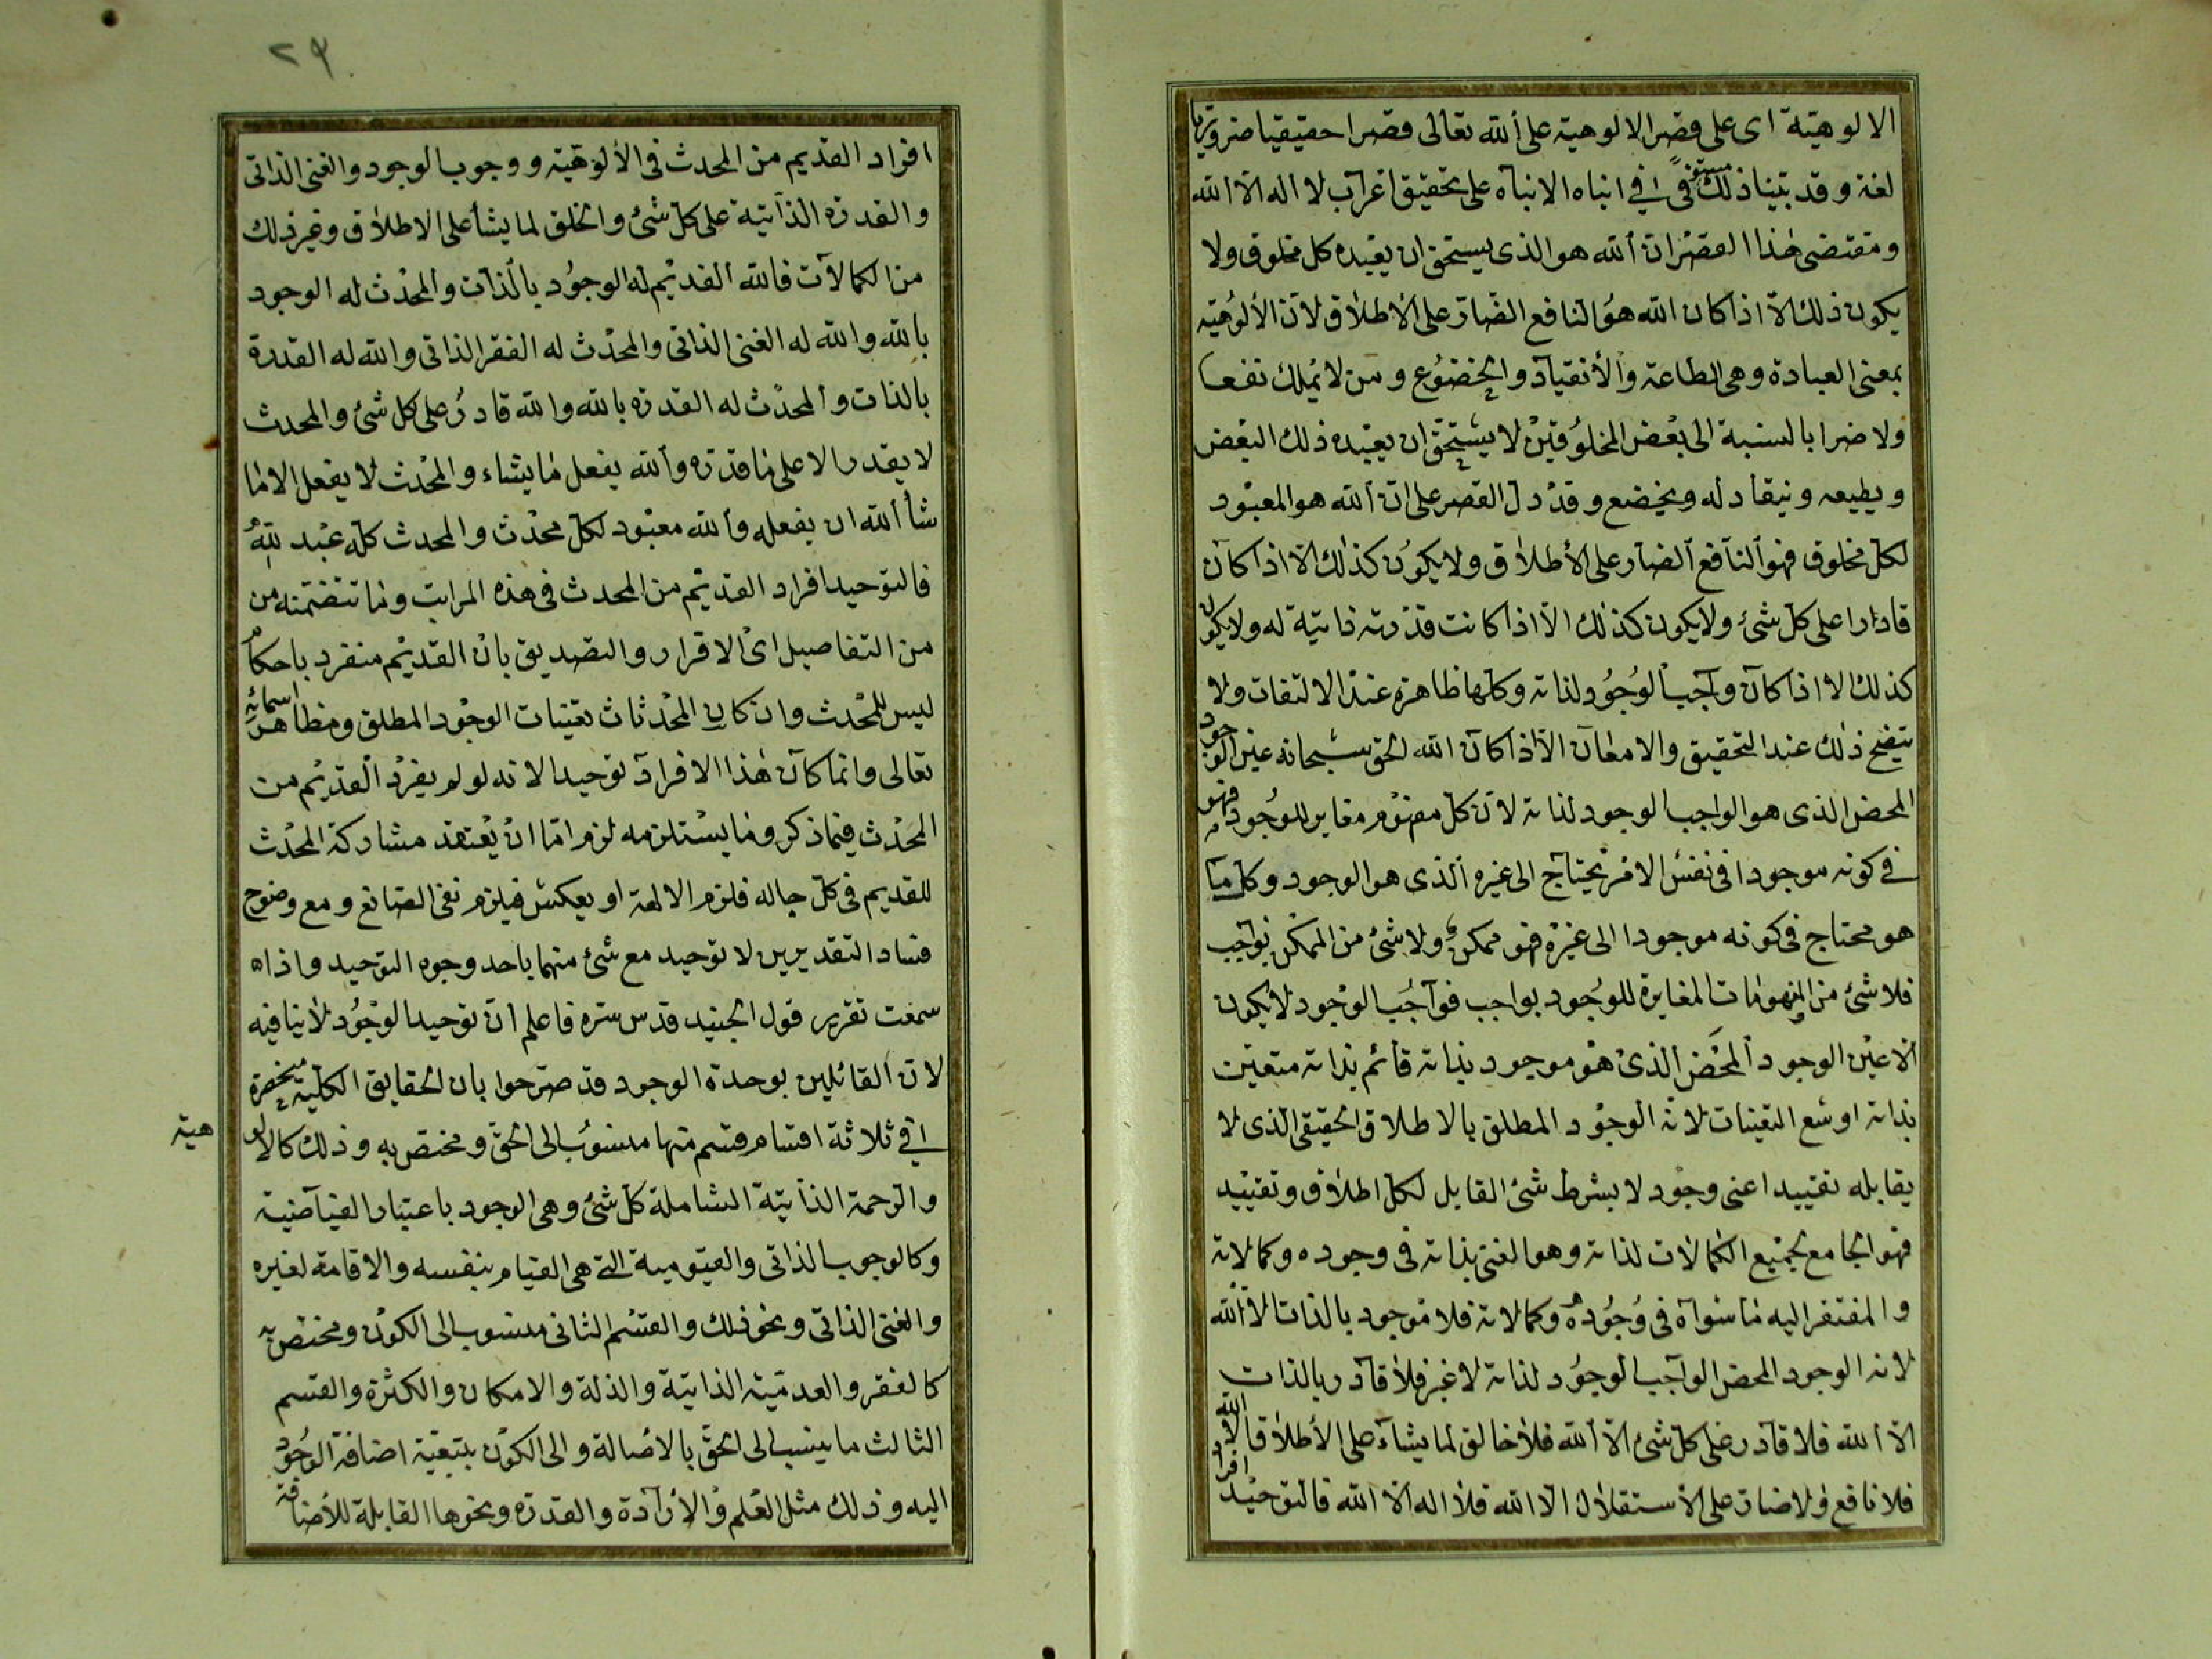 الالوهيّة اى على قصر الالوهية على الله تعالى قصرا حقيقيا ضروريا
لغة وقد بيّنا ذلك مستوفى في انباه الانباه على تحقيق اعراب لا اله الا الله
ومقتضى هذا القصر ان الله هو الذى يستحق ان يعبده كل مخلوق ولا
يكون ذلك الا اذا كان الله هو النافع الضار على الاطلاق لان الألوهية
بمعنى العبادة وهى الطاعة والأنقياد والخضوع ومن لا يملك نفعا
ولا ضرا بالنسبة الى بعض المخلوقين لا يستحق ان يعبده ذلك البعض
ويطيعه وينقاد له ويخضع وقد دل القصر على ان الله هو المعبود
لكل مخلوق فهو النافع الضار على الأطلاق ولا يكون كذلك الا اذا كان
قادرا على كل شئ ولا يكون كذلك الا اذا كانت قدرته ذاتية له ولا يكون
كذلك الا اذا كان واجب الوجود لذاته وكلها ظاهرة عند الالتفات ولا
يتضح ذلك عند التحقيق والامعان الا اذا كان الله الحق سبحانه عين الوجود
المحض الذى هو الواجب الوجود لذاته لان كل مفهوم مغاير للوجود فهو
في كونه موجودا فى نفس الامر يحتاج الى غيره الذى هو الوجود وكل ما
هو محتاج فى كونه موجودا الى غيره فهو ممكن ولا شئ من الممكن بواجب
فلا شئ من المفهومات المغايرة للوجود بواجب فواجب الوجود لا يكون
الا عين الوجود المحض الذى هو موجود بذاته قائم بذاته متعين
بذاته اوسع التعينات لانه الوجود المطلق بالاطلاق الحقيقى الذى لا
يقابله تقييد اعنى وجود لا بشرط شئ القابل لكل اطلاق وتقييد
فهو الجامع لجميع الكمالات لذاته وهو الغنى بذاته فى وجوده وكمالاته
والمفتقر اليه ما سواه فى وجوده وكمالاته فلا موجود بالذات الا الله
لانه الوجود المحض الواجب الوجود لذاته لا غير فلا قادر بالذات
الا الله فلا قادر على كل شئ الا الله فلا خالق لما يشاء على الأطلاق الا الله
فلا نافع ولا ضار على الأستقلال الا الله فلا اله الا الله فالتوحيد افراد
٢٩
افراد القديم من المحدث فى الألوهية ووجوب الوجود والغنى الذاتى
والقدرة الذاتية على كل شئ والخلق لما يشأ على الاطلاق وغير ذلك
من الكمالات فالله القديم له الوجود بالذات والمحدث له الوجود
بالله والله له الغنى الذاتى والمحدث له الفقر الذاتى والله له القدرة
بالذات والمحدث له القدرة بالله والله قادر على كل شئ والمحدث
لا يقدر الا على ما قدره والله يفعل ما يشاء والمحدث لا يفعل الا ما
شأ الله ان يفعله والله معبود لكل محدث والمحدث كله عبد لله
فالتوحيد افراد القديم من المحدث فى هذه المراتب وما تتضمنه من
من التفاصيل اى الاقرار والتصديق بان القديم منفرد باحكام
ليس للمحدث وان كان المحدثات تعينات الوجود المطلق ومظاهر اسمائه
تعالى وانما كان هذا الافراد توحيدا لانه لو لم يفرد القديم من
المحدث فيما ذكر وما يستلزمه لزم اما ان يعتقد مشاركة المحدث
للقديم فى كل حاله فلزم الالهة او يعكس فيلزم نفى الصانع ومع وضوح
فساد التقديرين لا توحيد مع شئ منهما باحد وجوه التوحيد واذا
سمعت تقرير قول الجنيد قدس سره فاعلم ان توحيد الوجود لا ينافيه
لان القائلين بوحدة الوجود قد صرحوا بان الحقايق الكلية منحصرة
في ثلاثة اقسام قسم منها منسوب الى الحق ومختص به وذلك كالالوهية
والرحمة الذاتية الشاملة كل شئ وهى الوجود باعتبار الفياضية
وكالوجوب الذاتى والقيومية التى هى القيام بنفسه والاقامة لغيره
والغنى الذاتى ونحو ذلك والقسم الثانى منسوب الى الكون ومختص به
كالفقر والعدمية الذاتية والذلة والامكان والكثرة والقسم
الثالث ما ينسب الى الحق بالاصالة والى الكون بتبعية اضافة الوجود
اليه وذلك مثل العلم والأرادة والقدرة ونحوها القابلة للأضافة